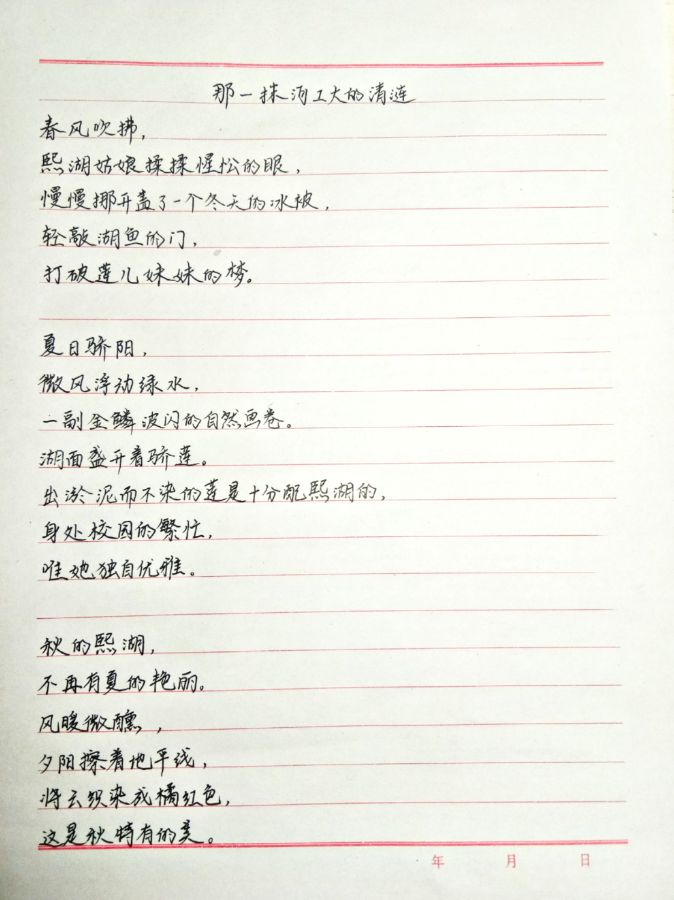 那一抹河工大的清涟
春风吹拂，
熙湖姑娘揉揉惺忪的眼，
慢慢挪开盖了一个冬天的冰被，
轻敲湖鱼的门，
打破莲儿妹妹的梦。
夏日骄阳，
微风浮动绿水，
一副金鳞波闪的自然画卷。
湖面盛开着骄莲。
出淤泥而不染的莲是十分配熙湖的，
身处校园的繁忙，
唯她独自优雅。
秋的熙湖，
不再有夏的艳丽。
风暖微醺，
夕阳擦着地平线，
将云织染成橘红色，
这是秋特有的美。
年 月 日